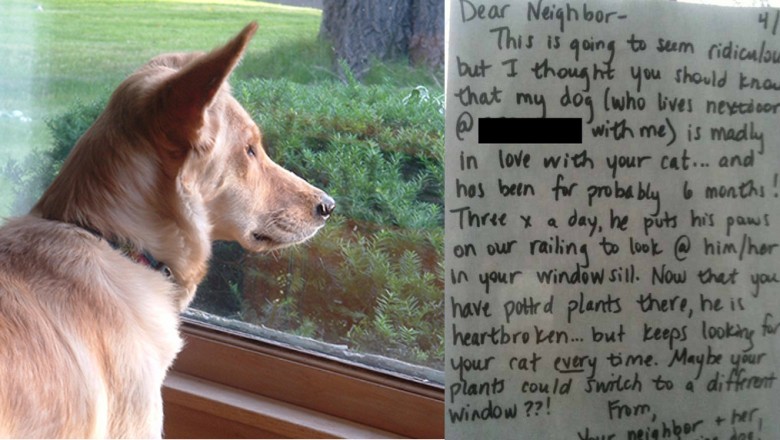 Dear Neighbor- 4/
This is going to seem ridiculou
but I thought you should know
that my dog (who lives nextdoor
@ with me) is madly
in love with your cat... and
has been for probably 6 months!
Three x a day, he puts his paws
on our railing to look @ him/her
in your windowsill. Now that you
have pottrd plants there, he is
heartbroken... but keeps looking for
your cat every time. Maybe your
plants could switch to a different
window??! From,
Your neighbor + her